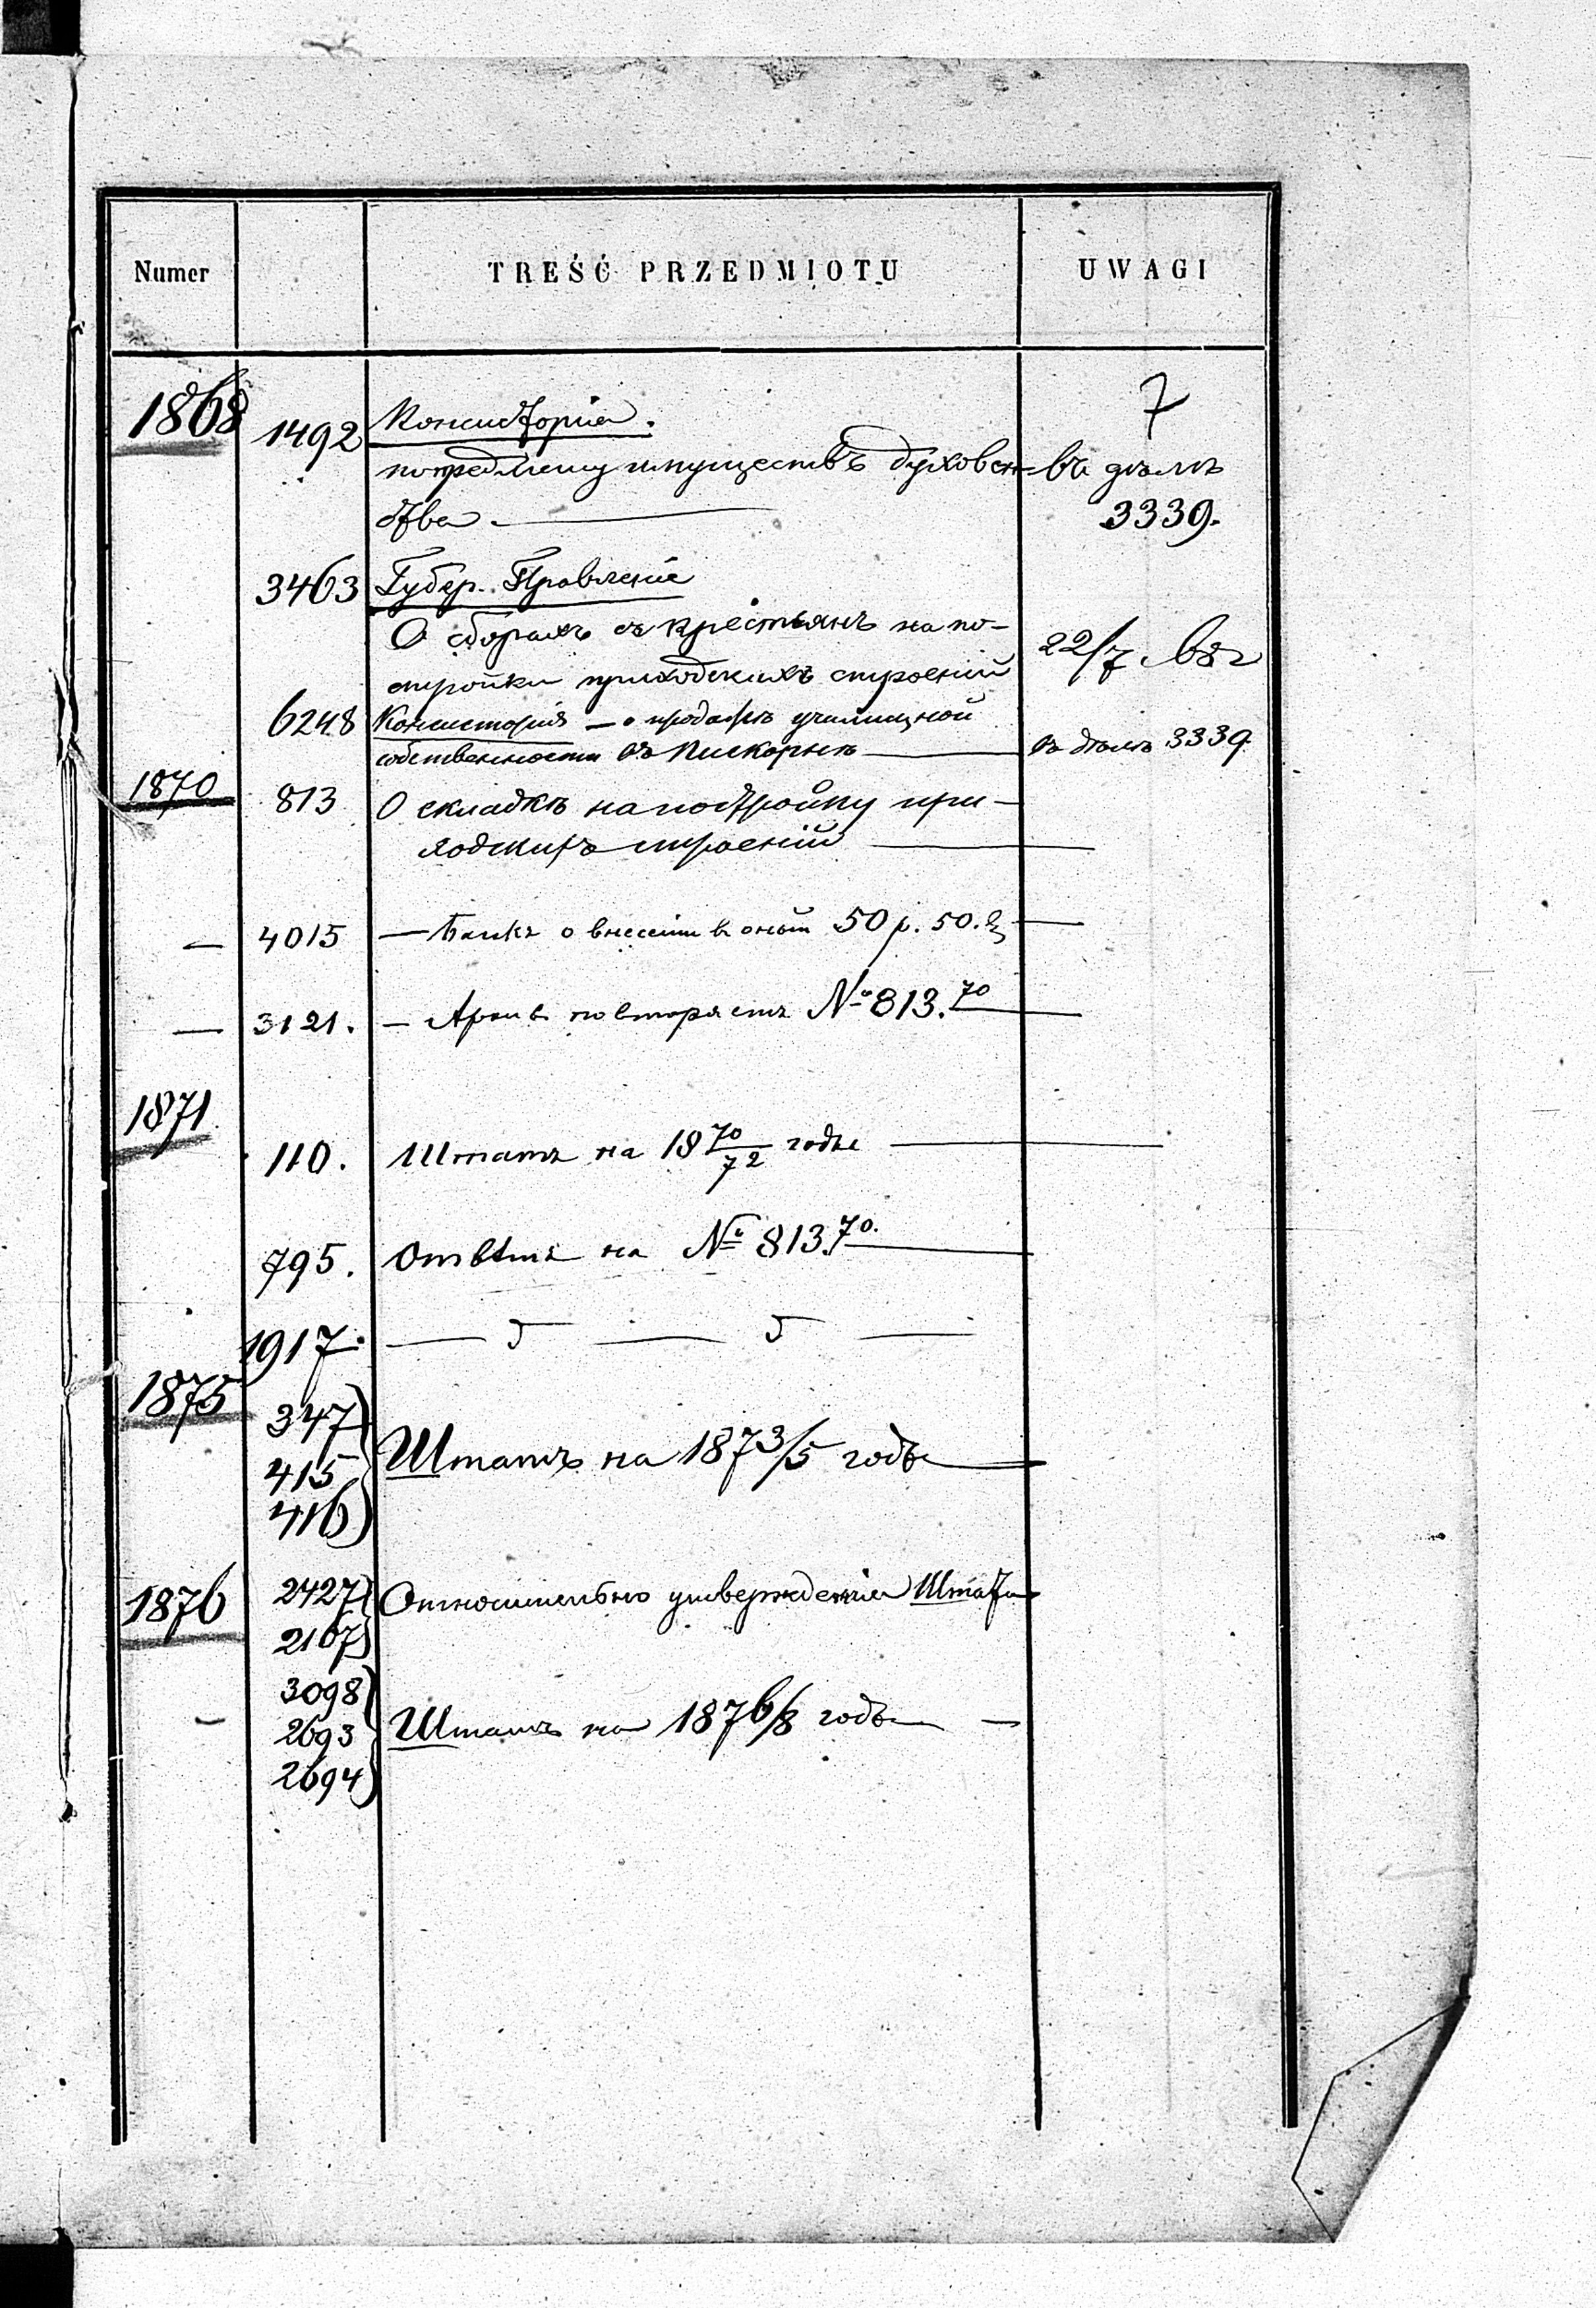 Numer TREŚĆ PRZEDMIOTU UWAGI
7
1868 1492 Консисторія.
по предмету имуществъ духовен- въ дѣлѣ
ства. — 3339.
3463 Губер. Правленіе
О сборахъ съ крестьянъ на по-
стройки приходскихъ строеній 22/7
6248 Консисторія — о продажѣ училищной
собственности въ Пискоркѣ — въ дѣлѣ 3339.
1870 813 О складкѣ на постройку при-
ходскихъ строеній —
— 4015 — Банкъ о внесеніи въ оный 50 р. 50.
— 3121. — повторяетъ № 813.70 —
1871
110. Штатъ на 18 70/72 годы —
795. Отвѣтъ на № 813.70. —
1917. — —
1875 347)
415 Штатъ на 1873/5 годы —
416)
1876 2427 Относительно утвержденія Штата
2167
3098
— 2693 Штатъ на 1876/8 годы —
2694)